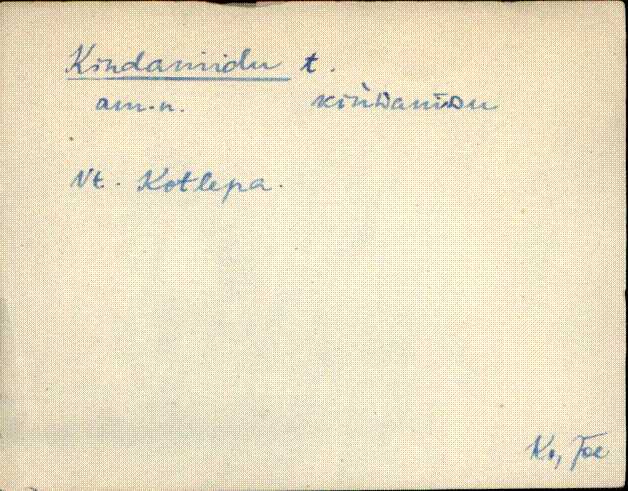 Kindaniidu t.
am.n. kiǹDaniɪDu
Vt. Kotlepa.
Kr, Toe